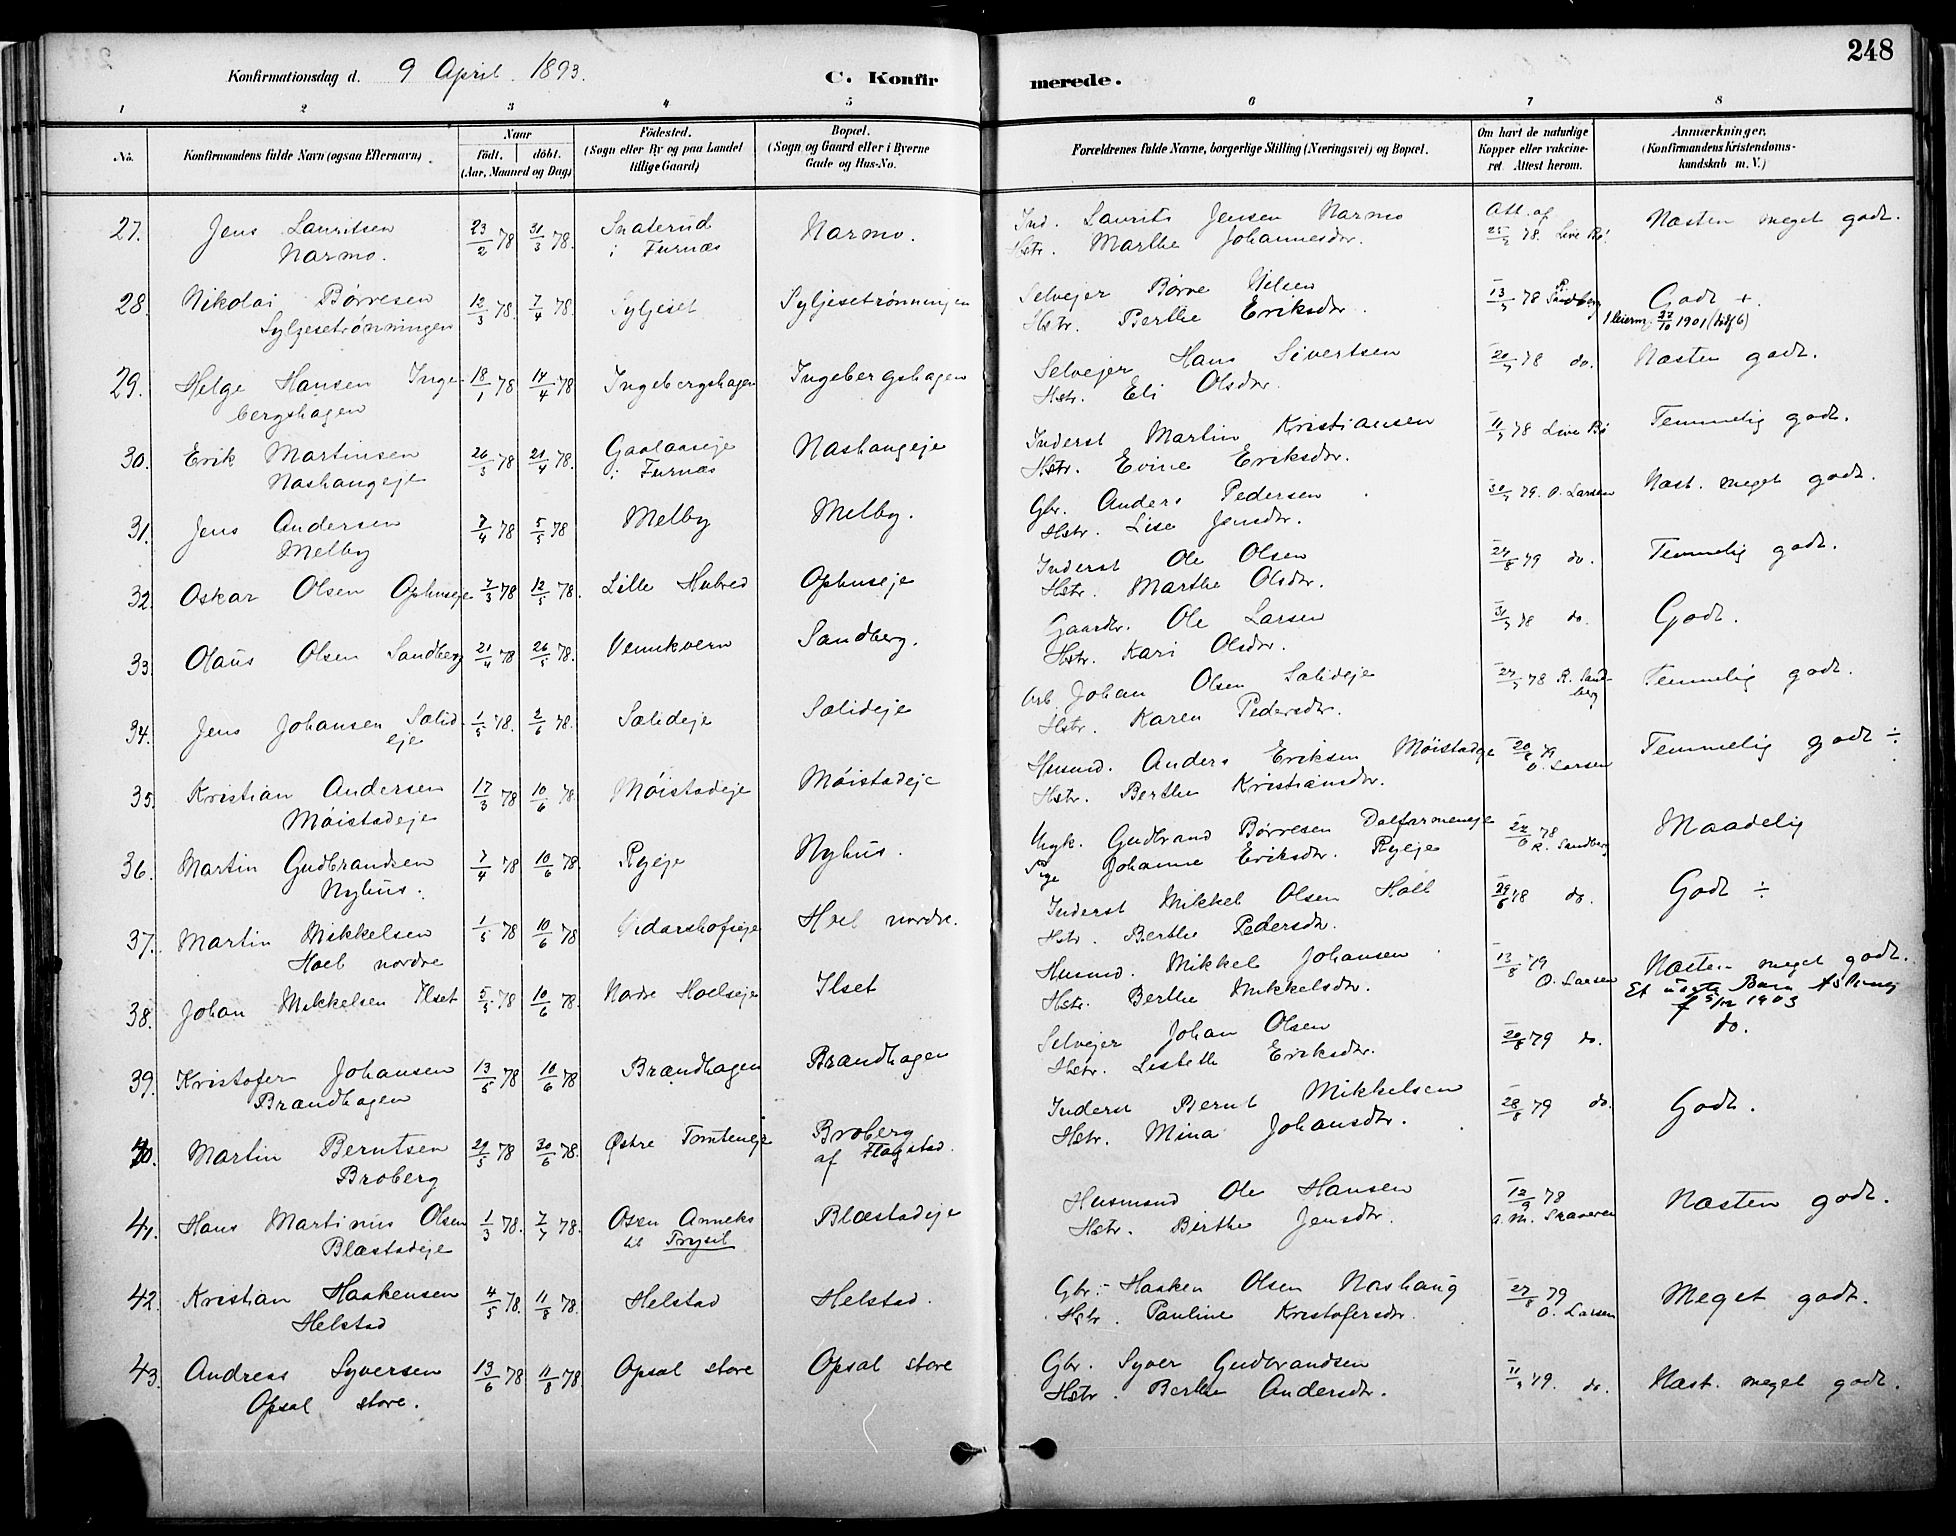 248
Konfirmationsdag d. 9 April. 1893.
C. Konfirmerede.
1 2 3 4 5 6 7 8
No. Konfirmandens fulde Navn (ogsaa Efternavn). Naar födt. döbt. (Aar, Maaned og Dag) Födested. (Sogn eller By og paa Landet tillige Gaard) Bopæl. (Sogn og Gaard eller i Byerne Gade og Hus-No. Forældrenes fulde Navne, borgerlige Stilling (Næringsvei) og Bopæl. Om havt de naturlige Kopper eller vakcineret. Attest herom. Anmærkninger. (Konfirmandens Kristendomskundskab m. V.)
27. Jens Lauritsen Narmo. 23/2 78 31/3 78. Snaterud i Furnæs Narmo. Ind. Laurits Jensen Narmo
Hstr. Marthe Johannesdtr. Att. af 78. Live Bö. Næsten meget godt.
28. Nikolai Börresen Syljesetrønningen 12/3 78. 7/4 78. Syljeset Syljesetrønningen Selvejer Börre Nilsen
Hstr. Berthe Eriksdtr. 78 Sandberg Godt +.
29. Helge Hansen Ingebergshagen 18/1 78 14/4 78 Ingebergshagen Ingebergshagen Selvejer Hans Sivertsen
Hstr. Eli Olsdtr. 78 do. Næsten godt.
30. Erik Martinsen Nashaugeje 26/3 78 21/4 78. Gaalaaseje i Furnæs Nashaugeje Inderst Martin Kristiansen
Hstr. Evine Eriksdtr. 78 Live Bö Temmelig godt.
31. Jens Andersen Melby 7/4 78 5/5 78 Melby Melby. Gbr. Anders Pedersen
Hstr. Lise Jensdtr. 79. O. Larsen Næst. meget godt.
32. Oskar Olsen Ophuseje 7/3 78 12/5 78. Lille Hubred Ophuseje Inderst Ole Olsen
Hstr. Marthe Olsdtr. 24/8 79 do. Temmelig godt.
33. Olaus Olsen Sandberg 21/4 78 26/5 78. Vennkvern Sandberg. Gaardbr. Ole Larsen
Hstr. Kari Olsdtr. 78 do. Godt.
34. Jens Johansen Sælideje 1/5 78. 2/6 78. Sælideje Sælideje Arb. Johan Olsen Sælideje
Hstr. Karen Pedersdtr. 78 R. Sandberg Temmelig godt.
35. Kristian Andersen Möistadeje 17/3 78 10/6 78. Möistadeje Möistadeje Husmd. Anders Eriksen Möistadeje
Hstr. Berthe Kristiansdtr. 79 O. Larsen Temmelig godt ÷
36. Martin Gudbrandsen Nyhus. 7/4 78 10/6 78. Ryeje Nyhus. Ungk. Gudbrand Börresen Dalfarmeneje
Pige Johanne Eriksdtr. Ryeje 78 R. Sandberg Maadelig
37. Martin Mikkelsen Hoel nordre 1/5 78 10/6 78 Vidarshofseje Hoel nordre. Inderst Mikkel Olsen Hoel
Hstr. Berthe Pedersdtr. 78 do. Godt ÷
38. Johan Mikkelsen Ilset 5/5 78 10/6 78. Nordre Hoelseje Ilset Husmd. Mikkel Johansen
Hstr. Berthe Mikkelsdtr. 13/8 79 O. Larsen Næsten meget godt.
Et uægte Barn
1903
39. Kristofer Johansen Brændhagen 13/5 78 10/6 78 Brændhagen Brændhagen Selvejer Johan Olsen
Hstr. Lisbeth Eriksdtr. 79 do. do.
40. Martin Berntsen Broberg 29/5 78 30/6 78. Østre Tomteneje Broberg af Flagstad. Inderst Bernt Mikkelsen
Hstr. Mina Johansdtr. 28/8 79 do. Godt.
41. Hans Martinus Olsen Blæstadeje 1/3 78. 7/7 78. Osen Anneks til Trysil Blæstadeje Husmand Ole Hansen
Hstr. Birthe Jensdtr. 12/9 78 Næsten godt.
42. Kristian Haakensen Helstad 4/5 78. 11/8 78. Helstad Helstad. Gbr. Haaken Olsen Nashaug
Hstr. Pauline Kristofersdtr. 27/8 79 O. Larsen Meget godt.
43. Andreas Syversen Opsal store. 13/6 78 11/8 78. Opsal store Opsal store Gbr. Syver Gudbrandsen
Hstr. Berthe Andersdtr. 79. do. Næst. meget godt.